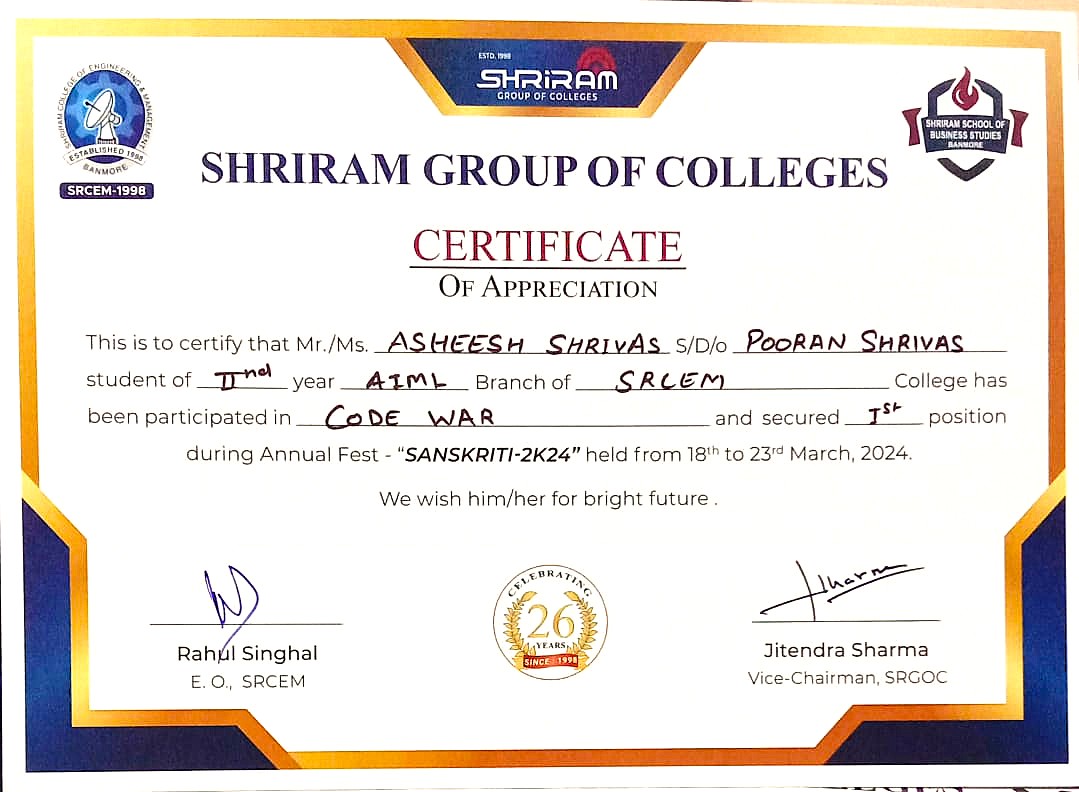 ESTD. 1998
SHRiRAM
GROUP OF COLLEGES
SHRIRAM COLLEGE OF ENGINEERING & MANAGEMENT
ESTABLISHED 1998
BANMORE
SRCEM-1998
SHRIRAM SCHOOL OF
BUSINESS STUDIES
BANMORE
SHRIRAM GROUP OF COLLEGES
CERTIFICATE
OF APPRECIATION
This is to certify that Mr./Ms. ASHEESH SHRIVAS S/D/o POORAN SHRIVAS
student of IInd year AIML Branch of SRCEM College has
been participated in CODE WAR and secured Ist position
during Annual Fest - “SANSKRITI-2K24” held from 18th to 23rd March, 2024.
We wish him/her for bright future .
CELEBRATING
26
YEARS
SINCE 1998
Sharma
Rahul Singhal
E. O., SRCEM
Jitendra Sharma
Vice-Chairman, SRGOC